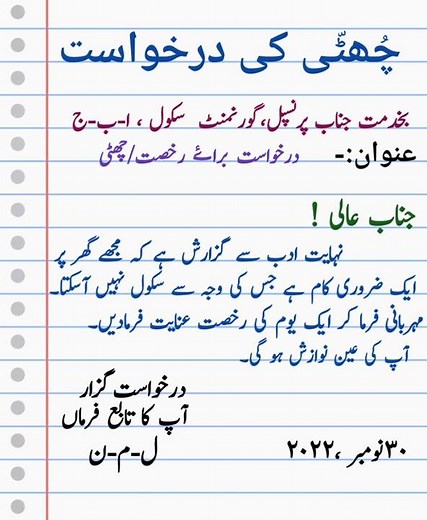 چُھٹّی کی درخواست
بخدمت جناب پرنسپل،گورنمنٹ سکول ، ا-ب-ج
عنوان:- درخواست برائے رخصت/چھٹی
جناب عالی !
نہایت ادب سے گزارش ہے کہ مجھے گھر پر
ایک ضروری کام ہے جس کی وجہ سے سکول نہیں آسکتا۔
مہربانی فرما کر ایک یوم کی رخصت عنایت فرمادیں۔
آپ کی عین نوازش ہو گی۔
درخواست گزار
آپ کا تابع فرماں
ل-م-ن
۳۰نومبر ،۲۰۲۲